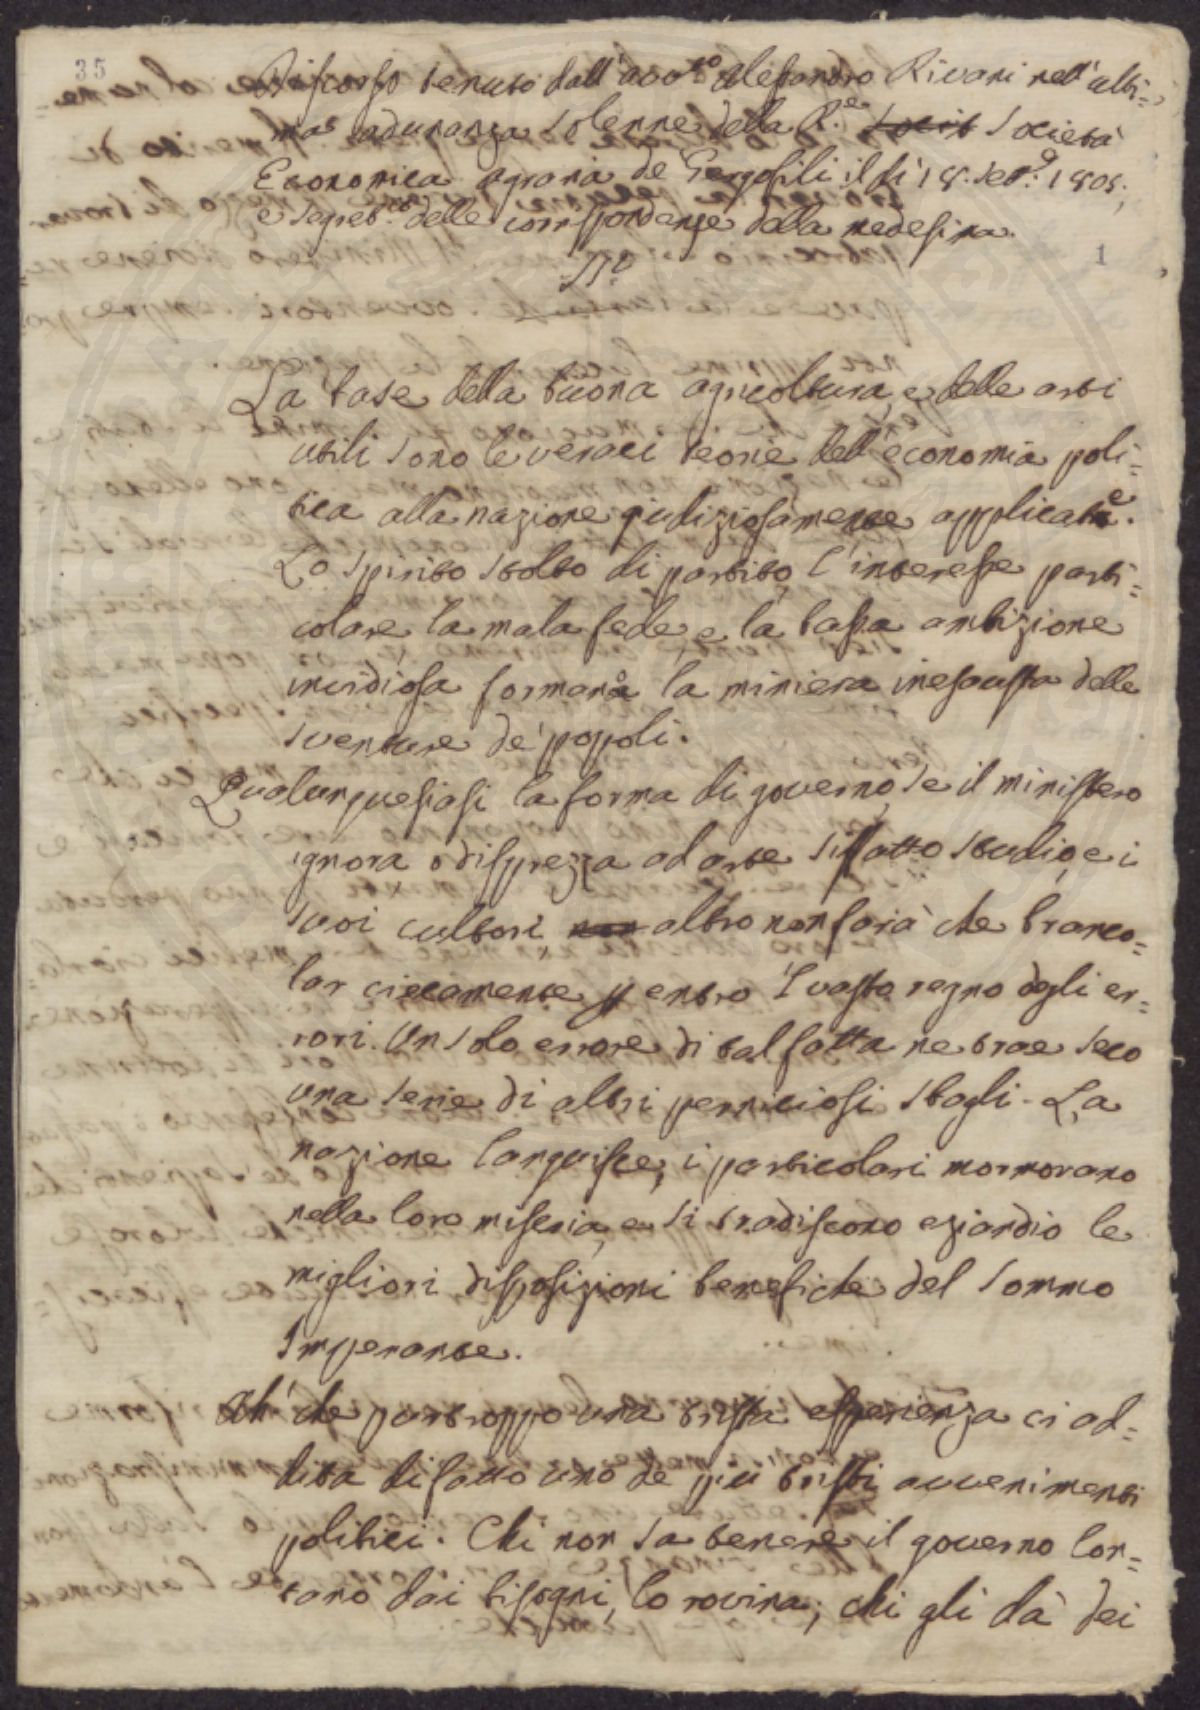 35
Discorso tenuto dall'avv.to Alessandro Rivani nell'ulti=
ma adunanza solenne della R.e Socit Società
Economica agraria de' Gergofili il dì 18. sett.e 1805;
e segret.rio delle corrispondenze della medesima.
1
La base della buona agricoltura, e delle arti
utili sono le veraci teorie dell'economia poli=
tica alla nazione giudiziosamente applicate.
Lo spirito stolto di partito, l'interesse parti=
colare la mala fede, e la bassa ambizione
insidiosa formano la miniera inesausta delle
sventure de' popoli.
Qualunquesiasi la forma di governo, se il ministero
ignora o disprezza ad arte siffatto studio, e i
suoi cultori, non altro non farà che branco=
lar ciecamente p entro 'l vasto regno degli er=
rori. Un solo errore di tal fatta ne trae seco
una serie di altri perniciosi sbagli. La
nazione languisce, i particolari mormorano
nella loro miseria, e si tradiscono eziandio le
migliori disposizioni benefiche del Sommo
Imperante.
Ah' che purtroppo una trista esperienza ci ad=
dita di fatto uno de' più tristi avvenimenti
politici. Chi non sa tenere il governo lon=
tano dai bisogni, lo rovina; chi gli dà dei